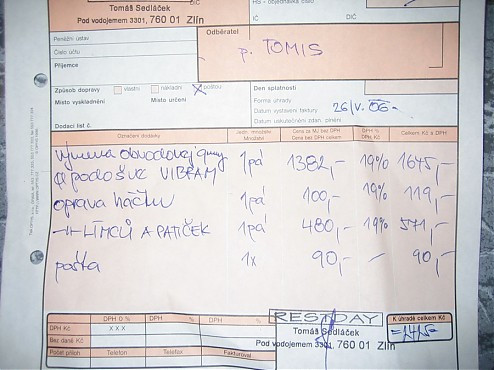 HS - objednávka číslo
Tomáš Sedláček
Pod vodojemem 3301, 760 01 Zlín
IČ DIČ
Peněžní ústav
Číslo účtu
Příjemce
Odběratel
p. TOMIS
Způsob dopravy vlastní nákladní X poštou
Místo vyskladnění Místo určení
Dodací list č.
Den splatnosti
Forma úhrady
Datum vystavení faktury 26/V. 06.-
Datum uskutečnění zdan. plnění
Označení dodávky Jedn. množství Množství Cena za MJ bez DPH Cena bez DPH DPH % DPH Kč Celkem Kč s DPH
výměna obvodovej gumy
a podošve VIBRAM 1pá 1382,- 19% 1645,-
oprava háčku 1pá 100,- 19% 119,-
-11- LÍMCŮ A PATIČEK 1pá 480,- 19% 571,-
pošta 1x 90,- - 90,-
DPH 0 % DPH % DPH %
DPH Kč X X X
Bez daně Kč
Počet příloh Telefon Telefon Fakturoval
RESTDAY
Tomáš Sedláček
Pod vodojemem 3301, 760 01 Zlín
K úhradě celkem Kč